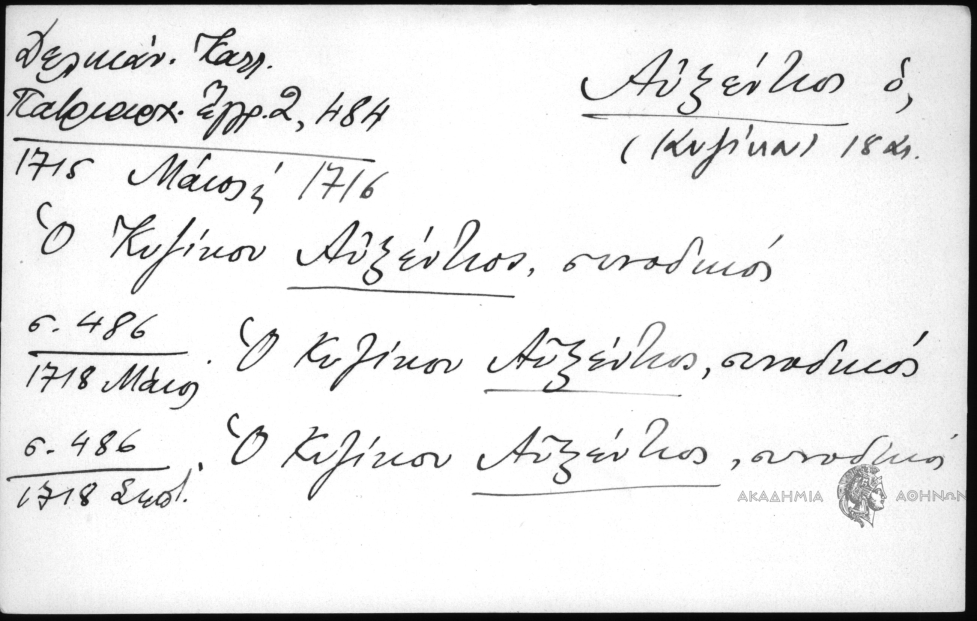 Δελικάν. Καλλ.
Πατριαρχ. Ἔγγρ. 2, 484
Αὐξέντιος ὁ,
(Κυζίκου) 18 αι.
1715 Μάιος ἢ 1716
Ὁ Κυζίκου Αὐξέντιος, συνοδικός
σ. 486
1718 Μάιος. Ὁ Κυζίκου Αὐξέντιος, συνοδικός
σ. 486
1718 Σεπτ. Ὁ Κυζίκου Αὐξέντιος, συνοδικός
ΑΚΑΔΗΜΙΑ ΑΘΗΝΩΝ